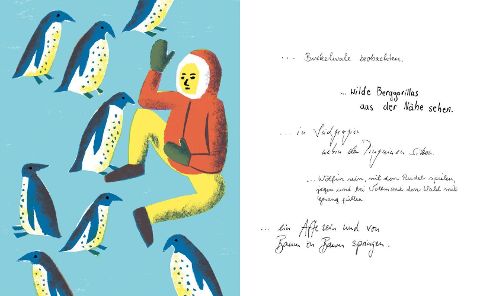 ... Buckelwale beobachten.
... wilde Berggorillas
aus der Nähe sehen.
... in
neben den Pinguinen sitzen.
... Wölfin sein, mit dem Rudel spielen,
jagen und bei Vollmond den Wald mit
Gesang füllen
... ein Affe sein und von
Baum zu Baum springen.